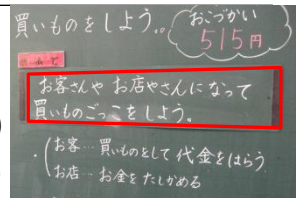 買いものをしよう。。
おこづかい
515円
めあて
お客さんや お店やさんに なって
買いものごっこをしよう。
・お客…買いものをして 代金をはらう
お店…お金を たしかめる